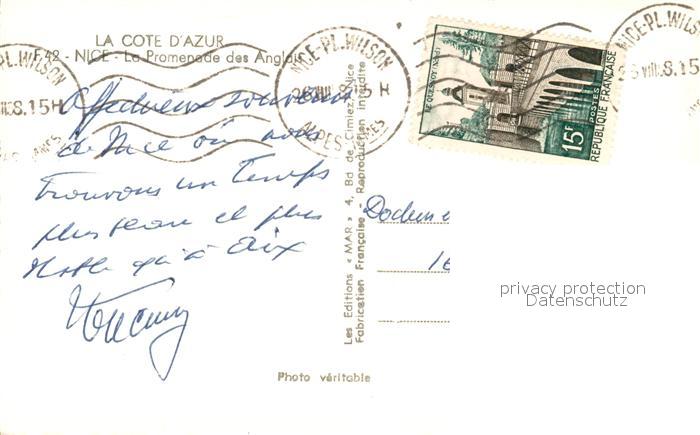 LA COTE D'AZUR
F 42 - NICE - La Promenade des Anglais
NICE-PL.WILSON
8.15H
ALPES-MMES
PL.WILSON
8.15H
NICE-PL.WILSON
LE QUESNOY (Nord)
15F
POSTES
REPUBLIQUE FRANÇAISE
Affectueux souvenir
de Nice où nous
trouvons un temps
plus beau et plus
stable qu'à Aix
Les Editions « MAR » 4, Bd de Cimiez, Nice
Fabrication Française - Reproduction interdite
16
privacy protection
Datenschutz
Photo véritable